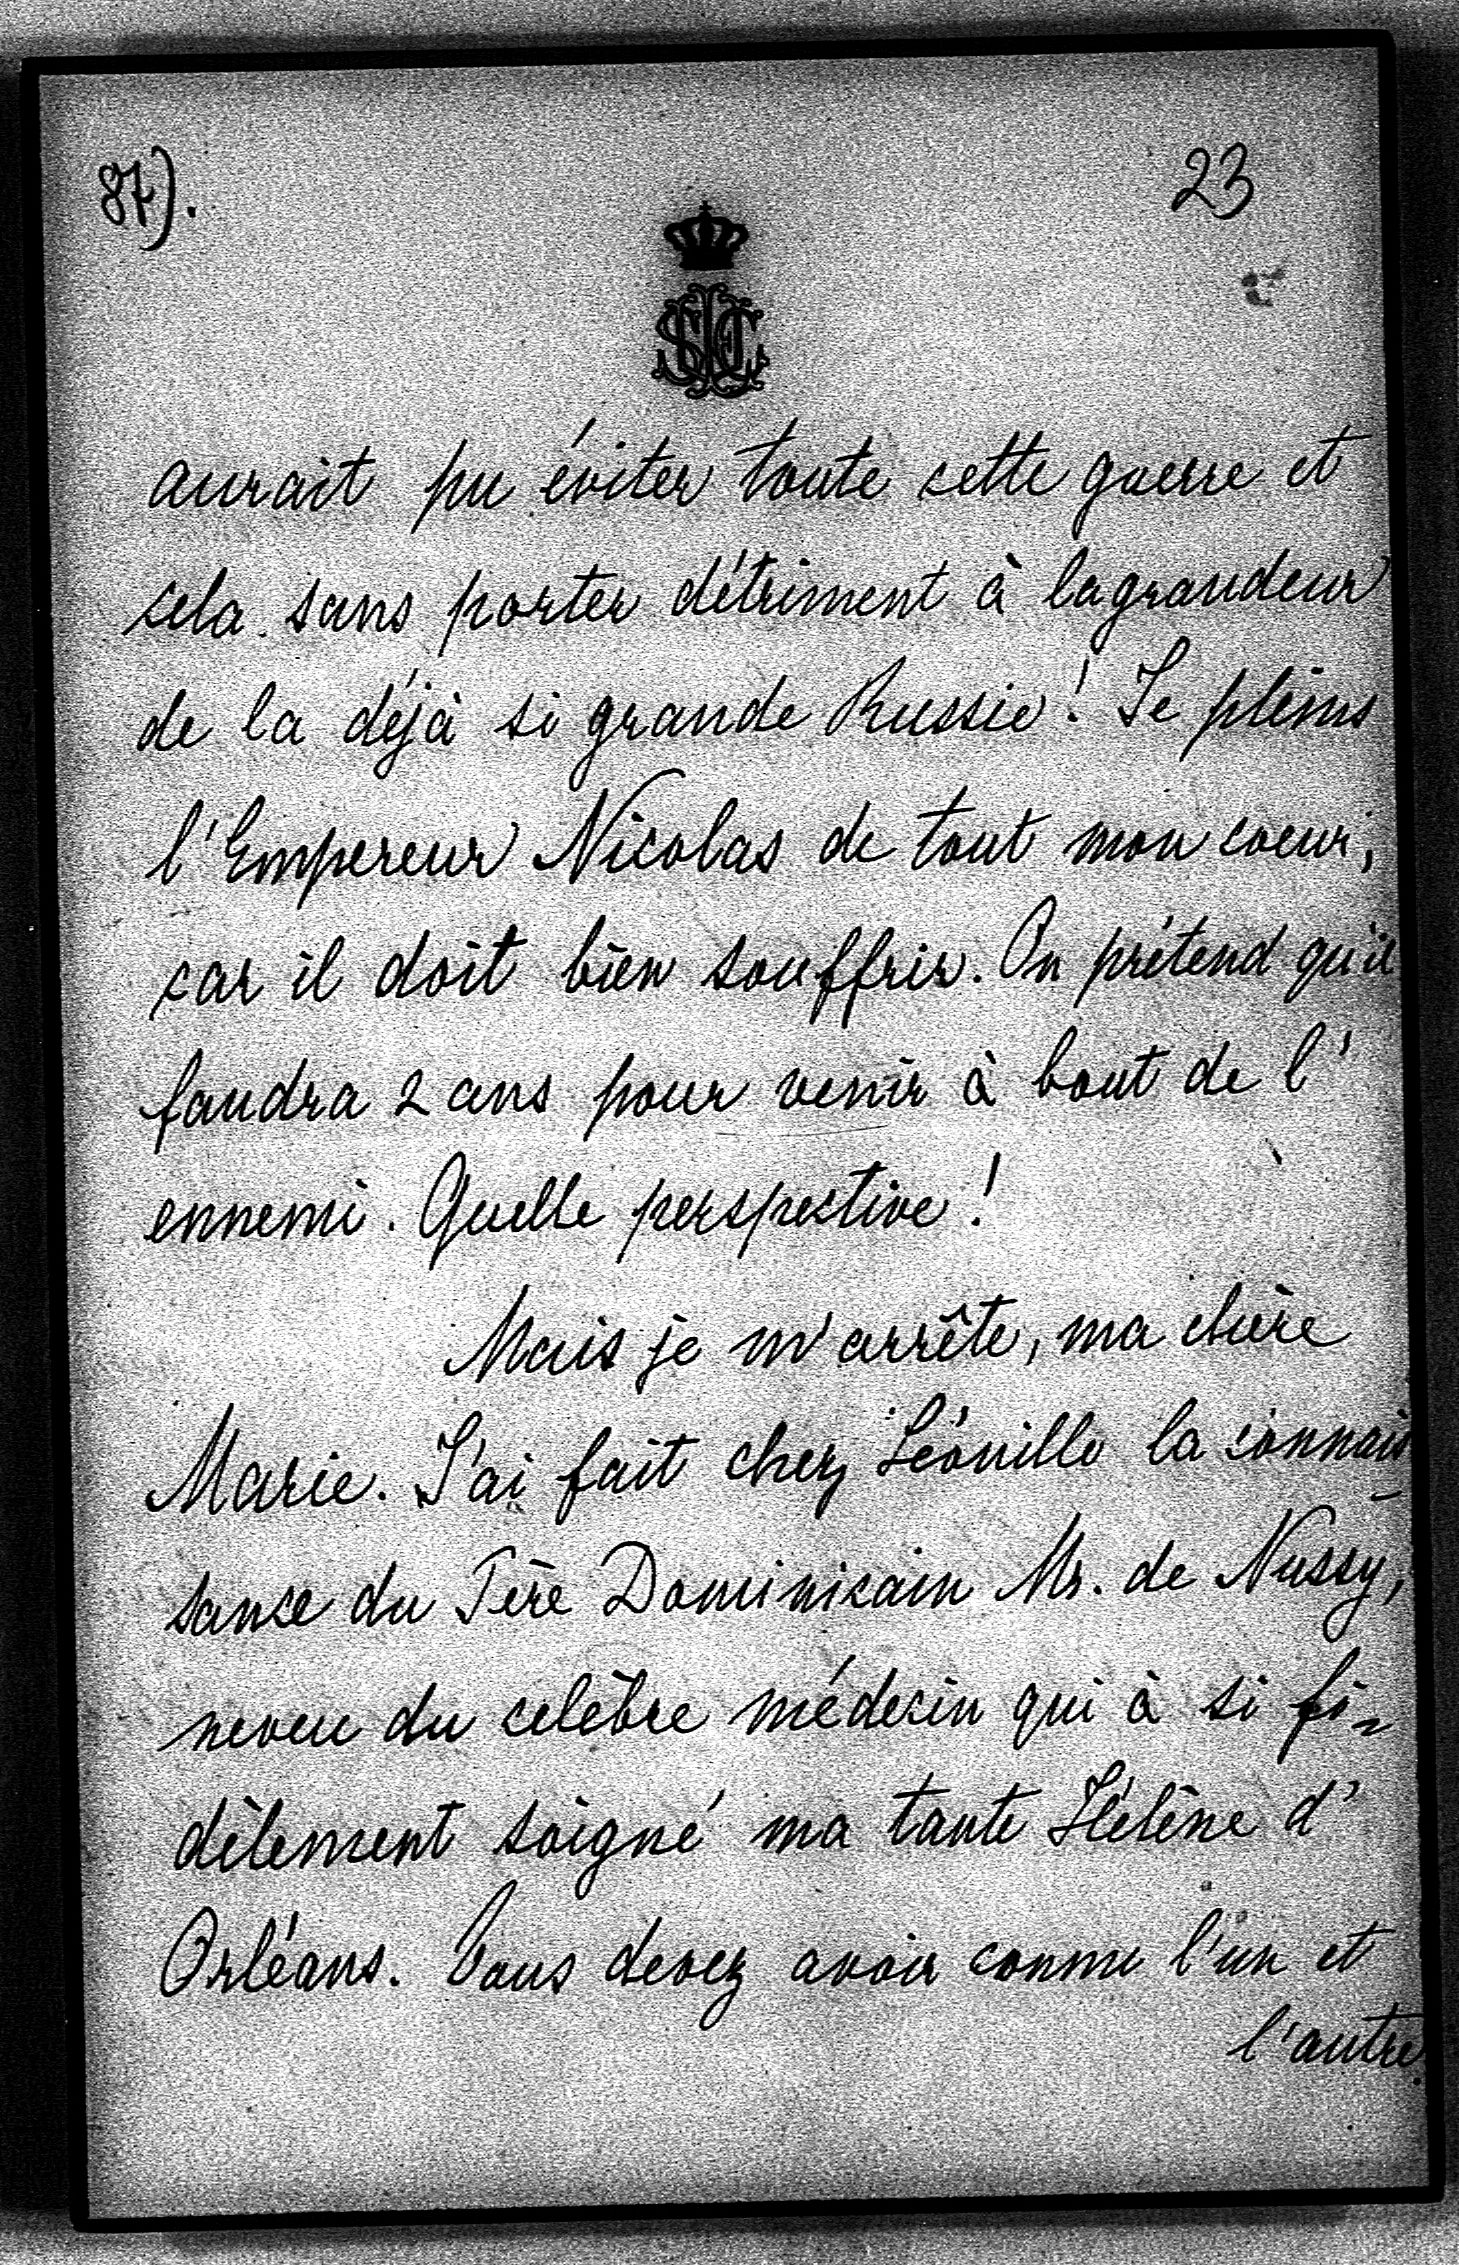 87).
23
aurait pu éviter toute cette guerre et
cela sans porter détriment à la grandeur
de la déjà si grande Russie! Je pleins
l'Empereur Nicolas de tout mon coeur,
car il doit bien souffrir. On prétend qu'il
faudra 2 ans pour venir à bout de l'
ennemi. Quelle perspective!
Mais je m'arrête, ma chère
Marie. J'ai fait chez Léonille la connais
sance du Père Dominicain Mr. de Nussy,
neveu du celèbre médecin qui à si fi-
dèlement soigné ma tante Hélène d'
Orléans. Vous devez avoir connu l'un et
l'autre.